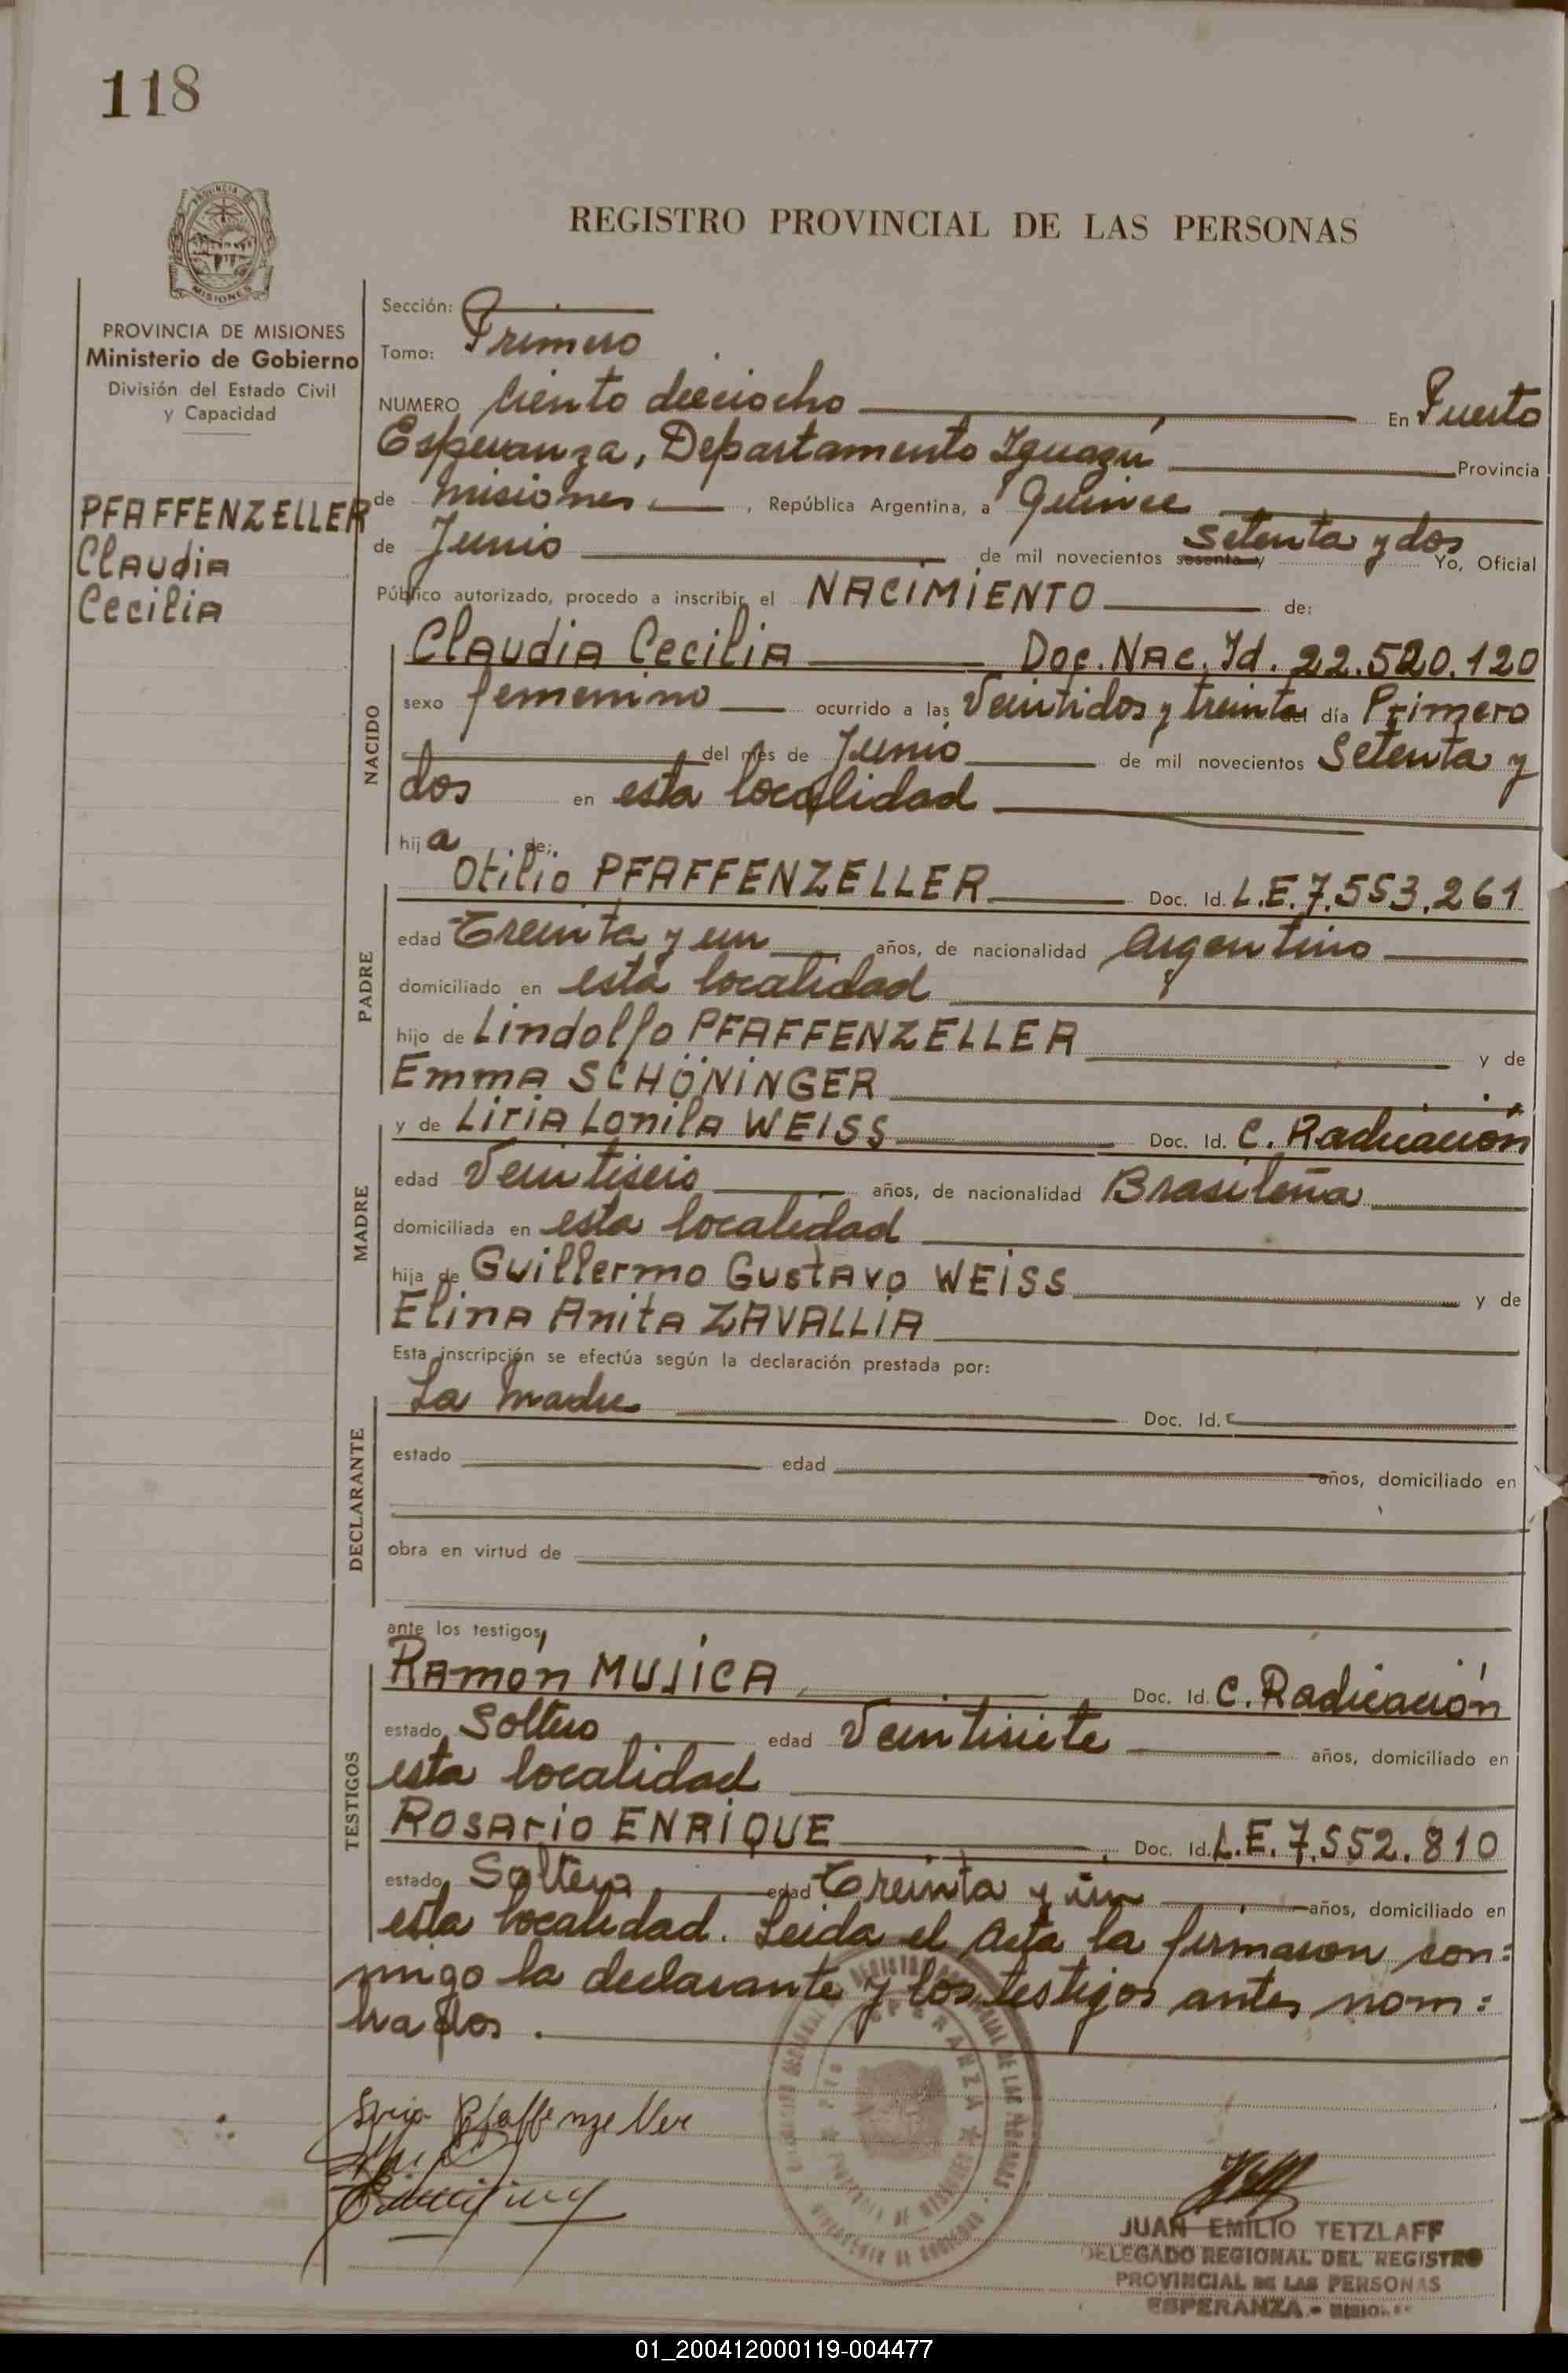 118
PROVINCIA
MISIONES
REGISTRO PROVINCIAL DE LAS PERSONAS
PROVINCIA DE MISIONES
Ministerio de Gobierno
División del Estado Civil
y Capacidad
PFAFFENZELLER
Claudia
Cecilia
Sección:
Tomo: Primero
NUMERO Ciento dieciocho En Puerto
Esperanza, Departamento Iguazú Provincia
de Misiones, República Argentina, a Quince
de Junio de mil novecientos sesenta y Setenta y dos Yo, Oficial
Público autorizado, procedo a inscribir el NACIMIENTO de:
NACIDO
Claudia Cecilia Doc. Nac. Id. 22.520.120
sexo femenino ocurrido a las Veintidos y treinta del día Primero
del mes de Junio de mil novecientos Setenta y
dos en esta localidad
hija de:
PADRE
Otilio PFAFFENZELLER Doc. Id. L.E. 7.553.261
edad Treinta y un años, de nacionalidad Argentino
domiciliado en esta localidad
hijo de Lindolfo PFAFFENZELLER y de
Emma SCHÖNINGER
MADRE
y de Liria Lonila WEISS Doc. Id. C. Radicación
edad Veintiseis años, de nacionalidad Brasileña
domiciliada en esta localidad
hija de Guillermo Gustavo WEISS y de
Elina Anita ZAVALLIA
Esta inscripción se efectúa según la declaración prestada por:
DECLARANTE
La madre Doc. Id.
estado edad años, domiciliado en
obra en virtud de
ante los testigos,
TESTIGOS
Ramón MUJICA Doc. Id. C. Radicación
estado Soltero edad Veintisiete años, domiciliado en
esta localidad
Rosario ENRIQUE Doc. Id. L.E. 7.552.810
estado Soltero edad Treinta y un años, domiciliado en
esta localidad. Leida el Acta la firmaron con=
migo la declarante y los testigos antes nom=
brados.
Pfaffenzeller
JUAN EMILIO TETZLAFF
DELEGADO REGIONAL DEL REGISTRO
PROVINCIAL DE LAS PERSONAS
ESPERANZA - MISIONES
01_200412000119-004477